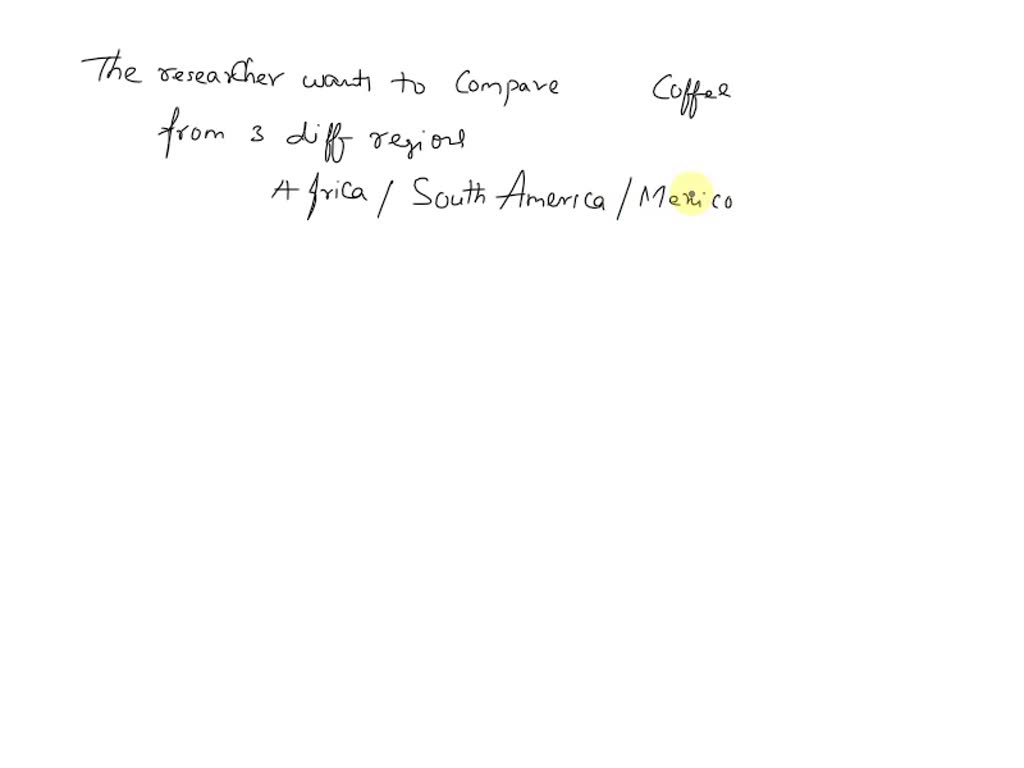 The researcher wants to compare Coffee
from 3 diff regions
Africa / South America / Mexico